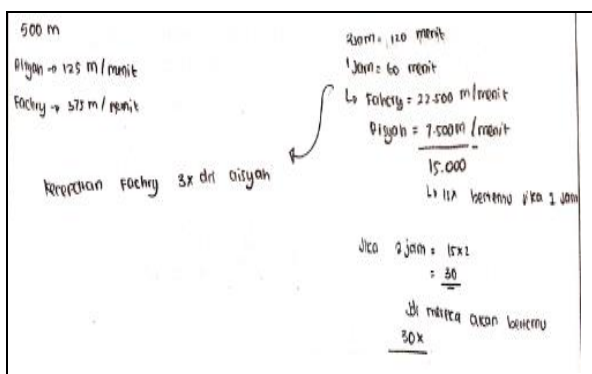 500 m
Aisyah → 125 m/menit
Fachry → 375 m/menit
kecepatan Fachry 3x dri aisyah
2 jam = 120 menit
1 jam = 60 menit
↳ Fahcry = 22.500 m/menit
Aisyah = 7.500 m/menit
15.000
↳ 15x bertemu jika 1 jam
Jika 2 jam = 15x2
= 30
Jdi mereka akan bertemu
30x